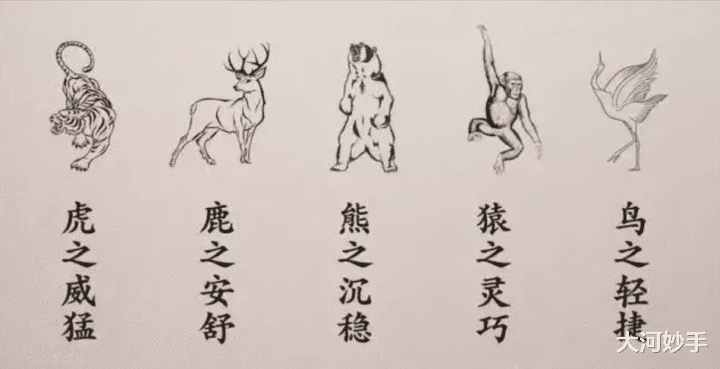 虎之威猛
鹿之安舒
熊之沉稳
猿之灵巧
鸟之轻捷
大河妙手